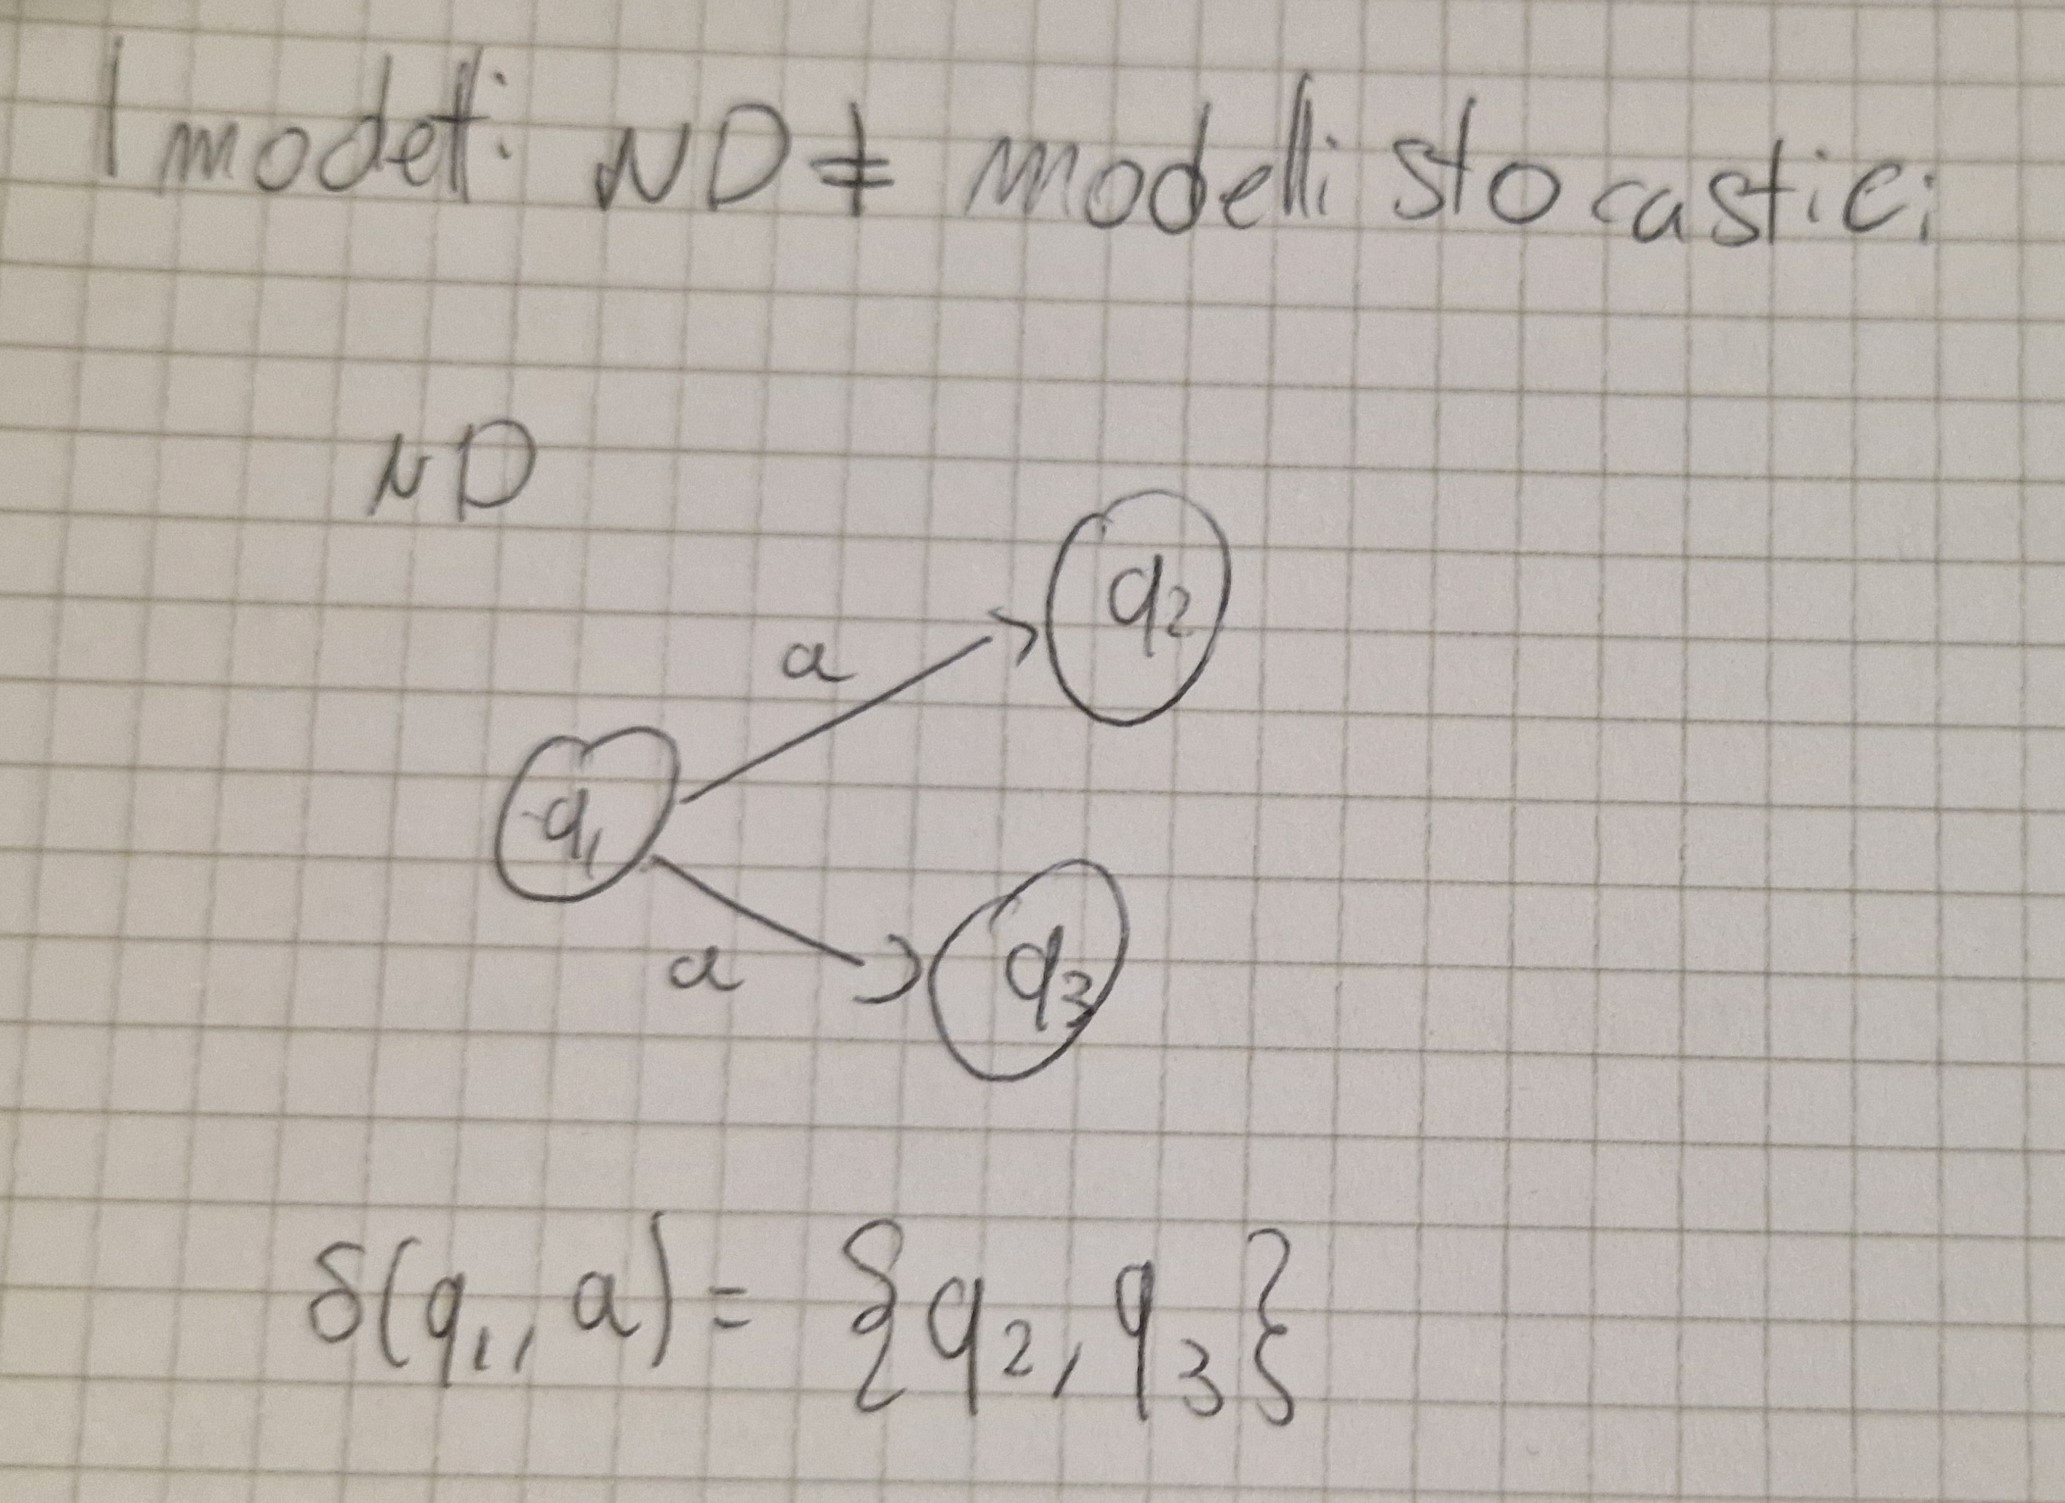 I modelli ND ≠ modelli stocastici
ND
q₂
a
q₁
a
q₃
δ(q₁, a) = {q₂, q₃}